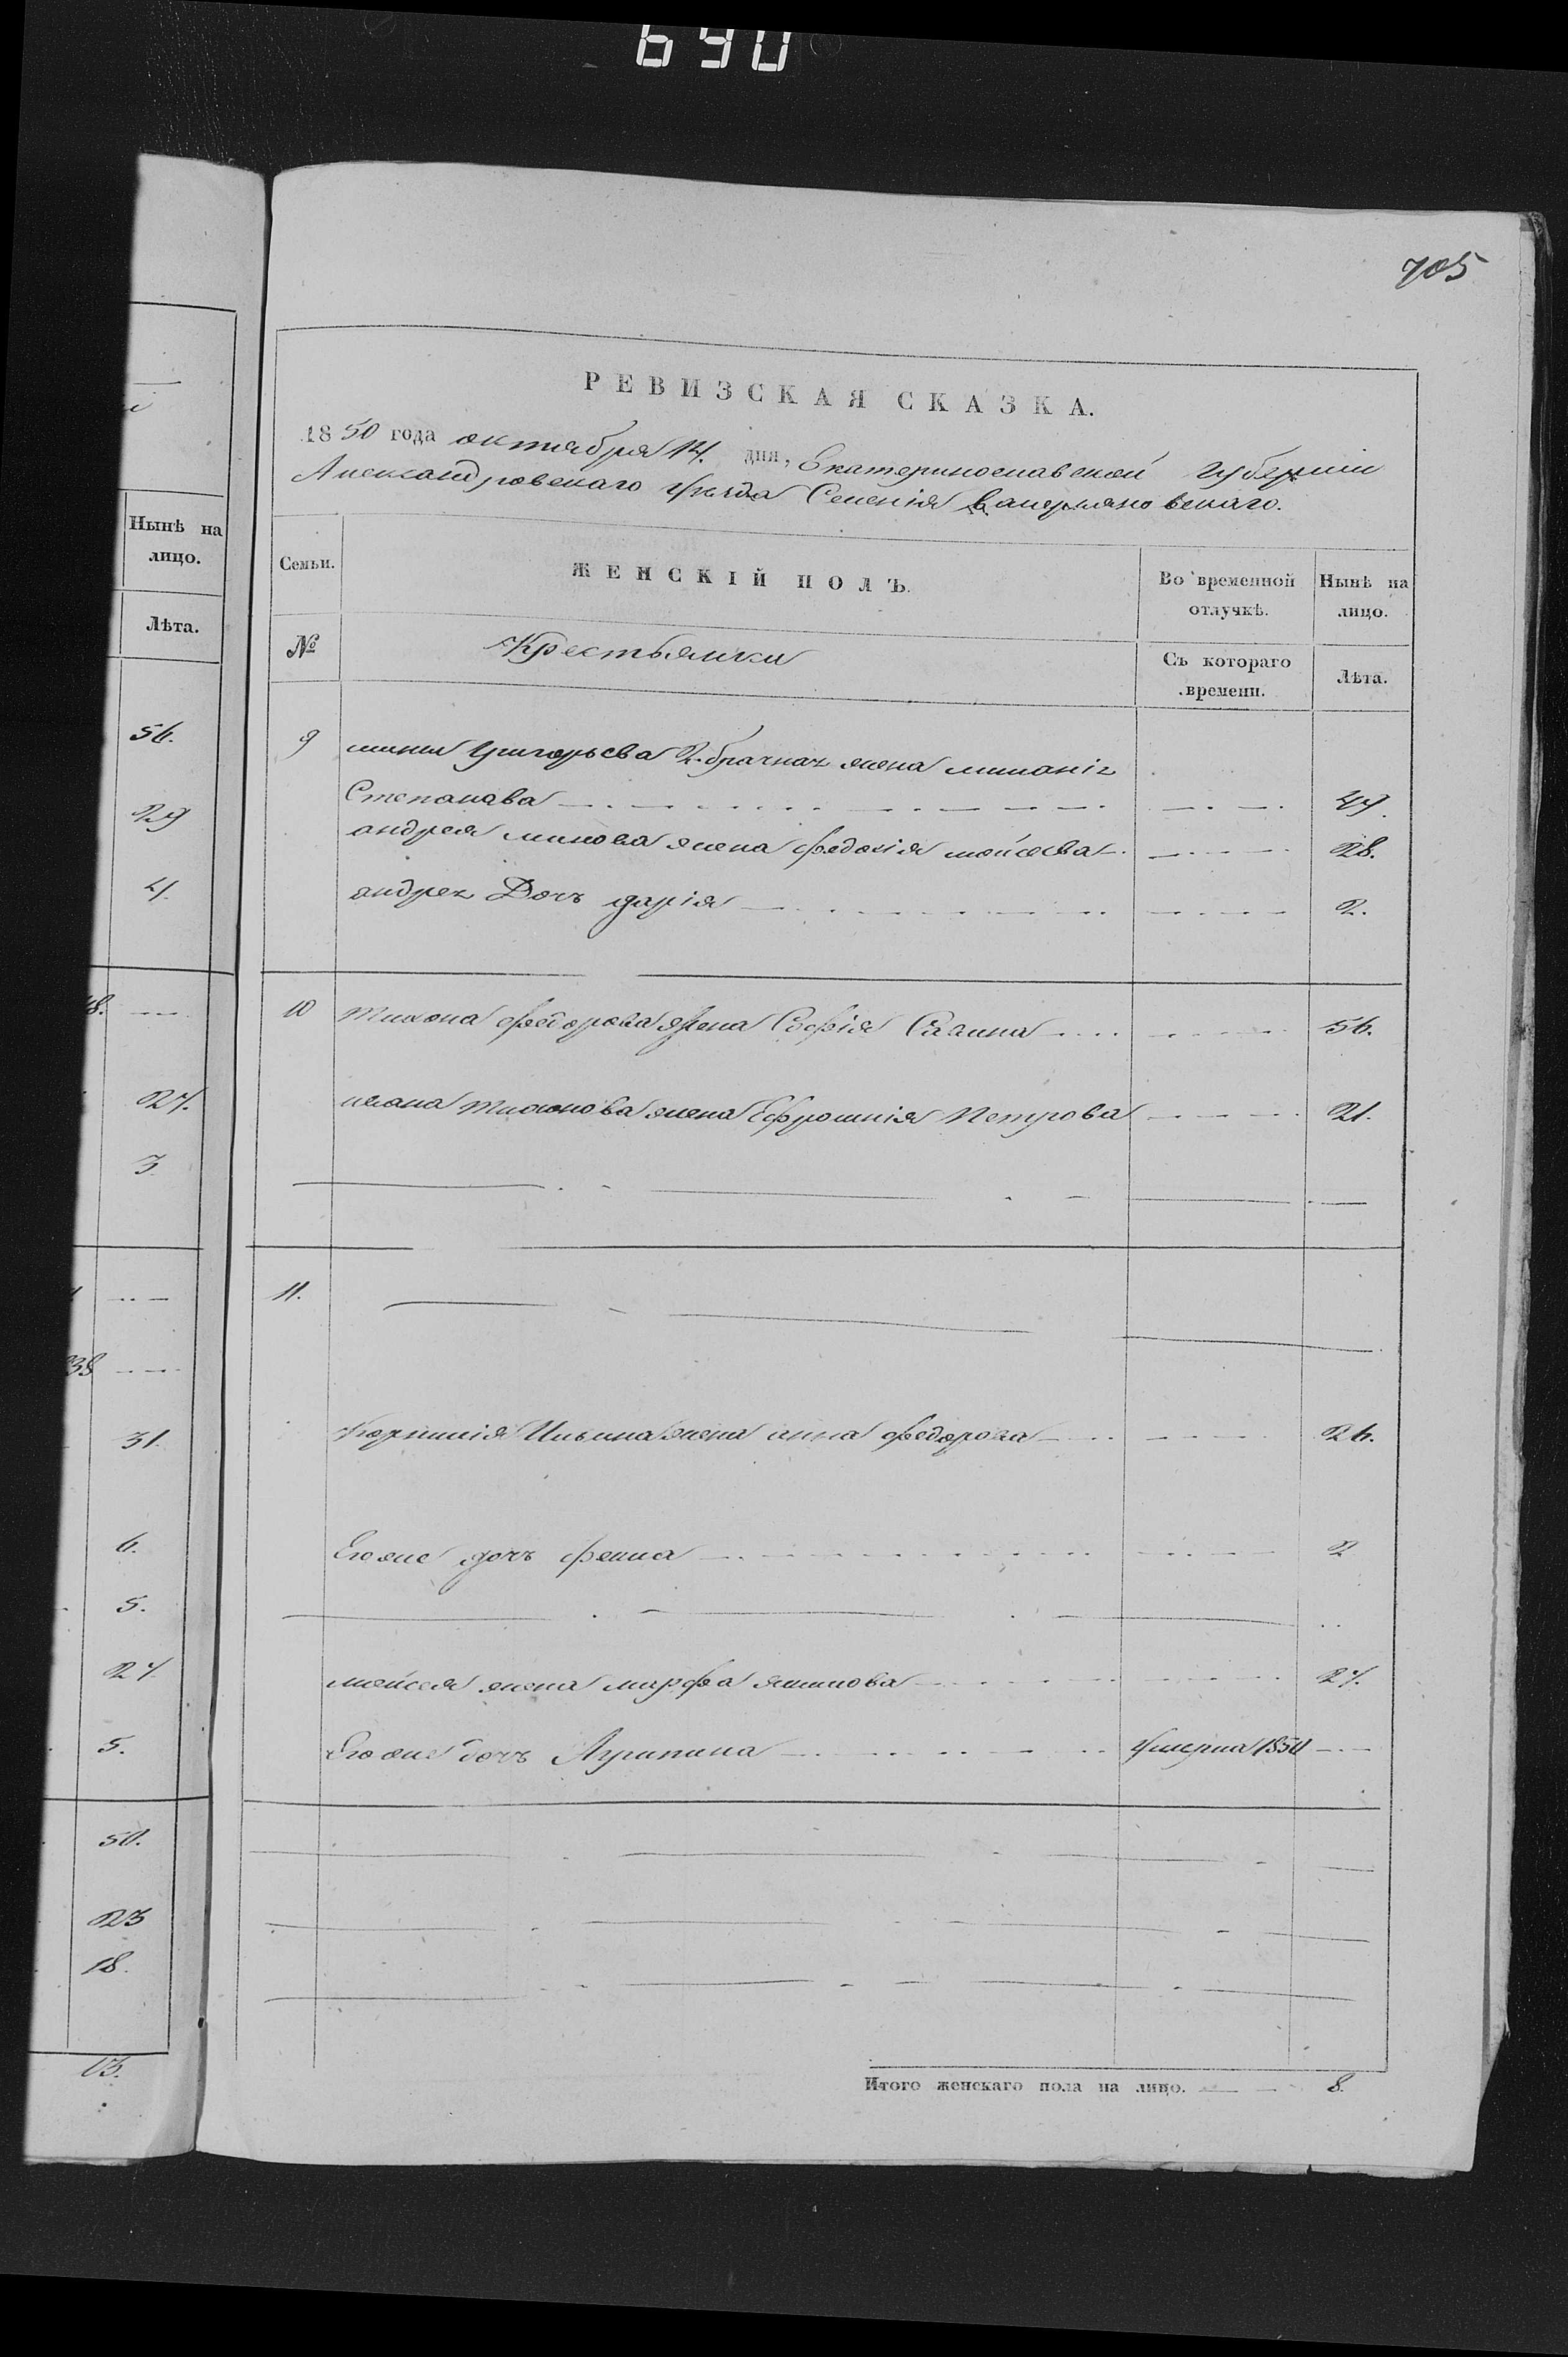 690
705
РЕВИЗСКАЯ СКАЗКА.
1850 года октября 14. дня, Екатеринославской губернии
Александровскаго уезда Селенія Валерьяновскаго.
Семьи.
ЖЕНСКІЙ ПОЛЪ.
Во временной отлучкѣ.
Нынѣ на лицо.
№
Крестьянки
Съ котораго времени.
Лѣта.
9 мины Григорьева 2. брачная жена
Степанова 47.
андрея минова жена федосія мойсеева 28.
андрея Дочь дарія 2.
10 Тихона федорова жена Софія Савина 56.
ивана Тихонова жена Ефросинія Петрова 21.
11.
Корнилія Ильина жена анна федорова 26.
Его же дочь фекла 2
мойсея жена марфа якимова 27.
Его же дочь Агрипина умерла 1850
Итого женскаго пола на лицо. 8.
Нынѣ на
лицо.
Лѣта.
56.
29
4.
48.
27.
3
38
31.
6.
5.
27
5.
50.
23
18.
13.